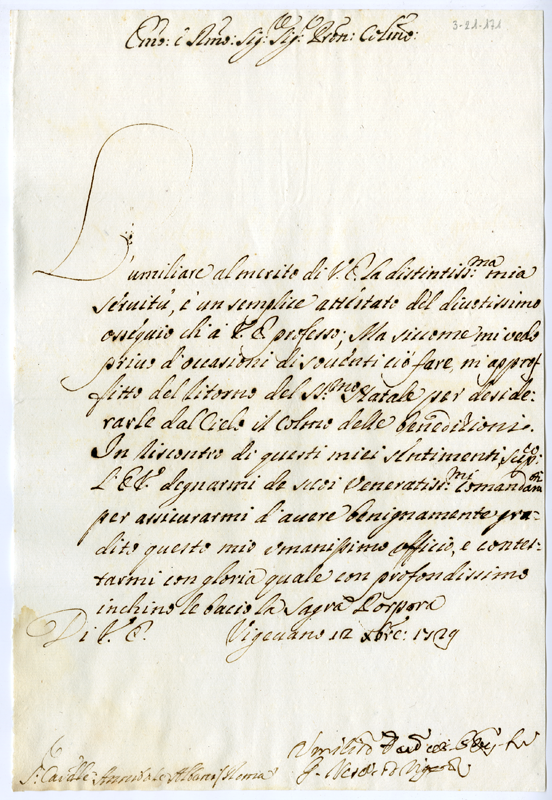 3-21-171
Emo: e Rmo: Sig: Sig: Pron: Colmo:
L'umiliare al merito di V. E. la distintiss:ma mia
seruitù, è un semplice attestato del diuotissimo
ossequio ch'à V. E. professo; Ma siccome mi vedo
priuo d'occasioni di souenti ciò fare, m'approf=
fitto del ritorno del SS:mo Natale per deside=
rarle dal Cielo il Colmo delle benedizioni.
In riscontro di questi miei sentimenti
L'E. V. degnarmi de suoi Veneratiss:mi Comandam:ti
per assicurarmi d'auere benignamente gra=
dito questo mio umanissimo officio, e contes=
tarmi con gloria quale con profondissimo
inchino le bacio la Sagra Porpora
Di V. E. Vigeuano 12 Xbre: 1729
Albano / Roma